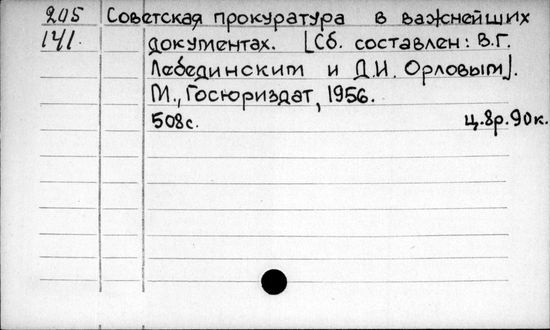 205 Советская прокуратура в важнейших
141. документах. [Сб. составлен: В.Г.
Лебединским и Д.И. Орловым].
М., Госюриздат, 1956.
508с. ц.8р.90к.